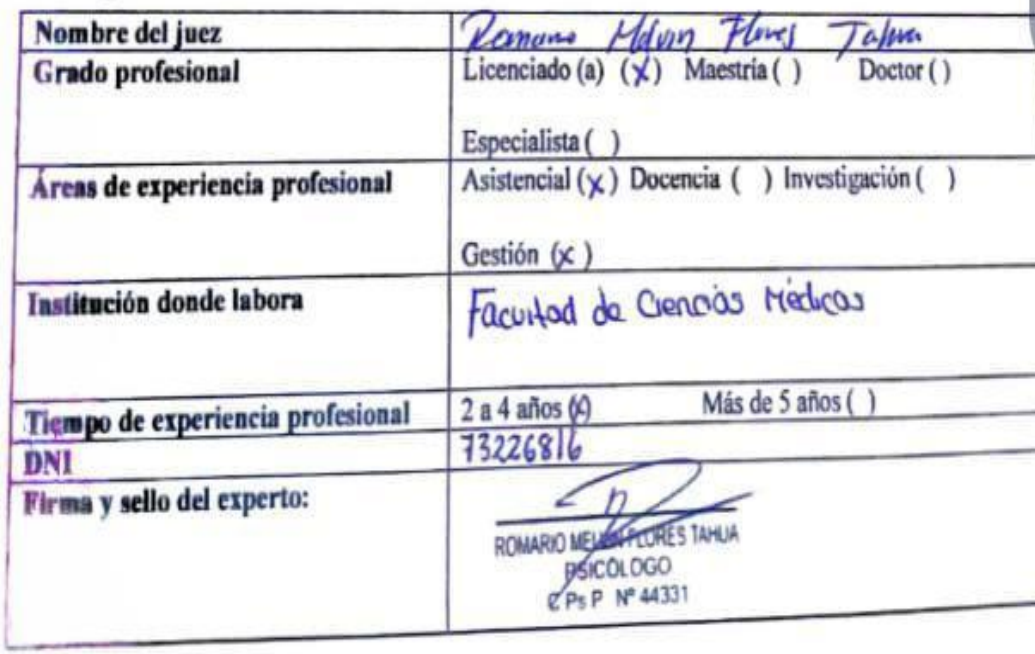 Nombre del juez Romario Melvin Flores Tahua
Grado profesional Licenciado (a) (x) Maestria ( ) Doctor ( )
Especialista ( )
Áreas de experiencia profesional Asistencial (x) Docencia ( ) Investigación ( )
Gestión (x)
Institución donde labora Facultad de Ciencias Médicas
Tiempo de experiencia profesional 2 a 4 años (x) Más de 5 años ( )
DNI 73226816
Firma y sello del experto:
ROMARIO MELVIN FLORES TAHUA
PSICÓLOGO
C Ps P Nº 44331